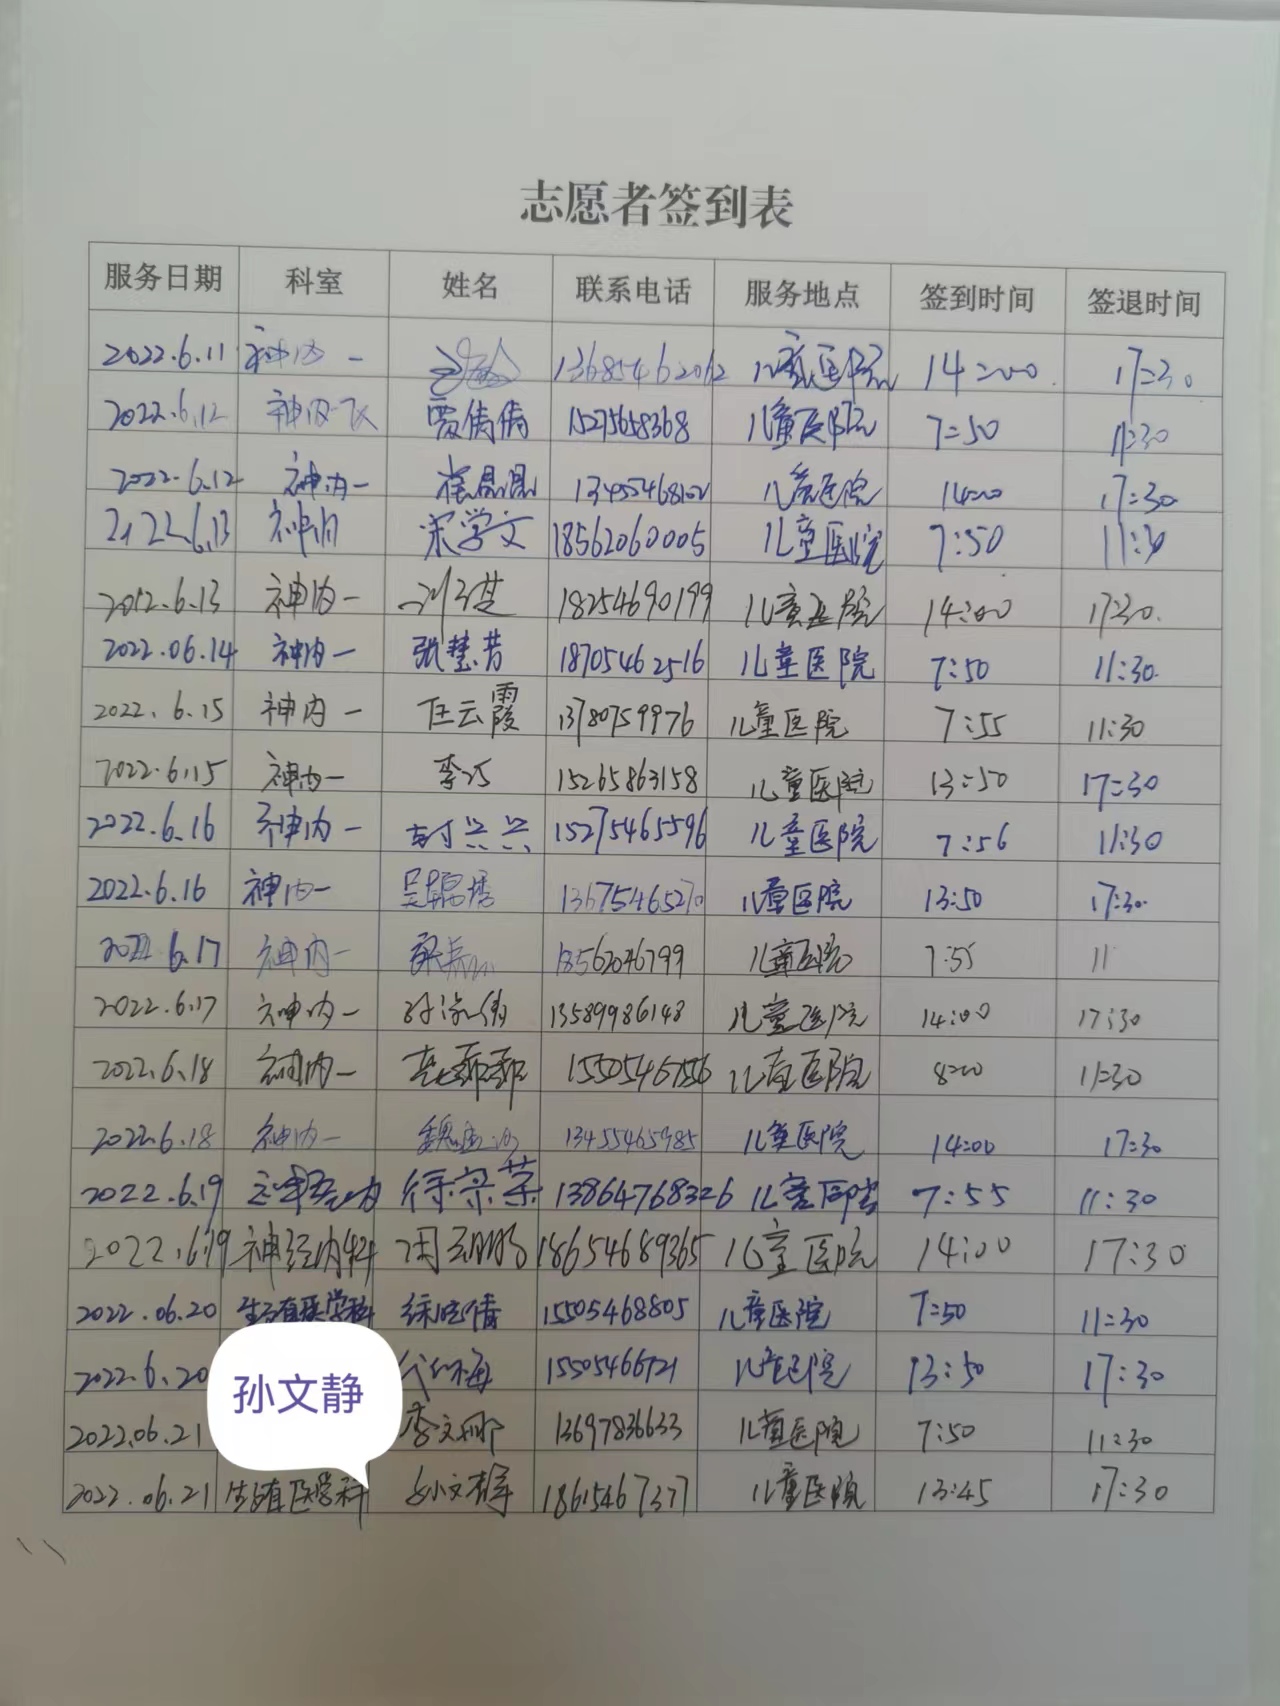 志愿者签到表
服务日期 科室 姓名 联系电话 服务地点 签到时间 签退时间
2022.6.11 神内一 13685462062 儿童医院 14:00 17:30
2022.6.12 神内一 贾倩倩 15275658368 儿童医院 7:50 11:30
2022.6.12 神内一 崔晶晶 儿童医院 14:00 17:30
2022.6.13 神内 宋学文 18562060005 儿童医院 7:50 11:30
2012.6.13 神内一 18254690199 儿童医院 14:00 17:30
2022.06.14 神内一 张慧芳 18705462516 儿童医院 7:50 11:30
2022.6.15 神内一 任云霞 13780759976 儿童医院 7:55 11:30
2022.6.15 神内一 李巧 15265863158 儿童医院 13:50 17:30
2022.6.16 神内一 封兴兴 15275465596 儿童医院 7:56 11:30
2022.6.16 神内一 13675465270 儿童医院 13:50 17:30
2022 6.17 神内一 18562046799 儿童医院 7:55 11
2022.6.17 神内一 13589986148 儿童医院 14:00 17:30
2022.6.18 神内一 儿童医院 8:00 11:30
2022.6.18 神内一 13455465985 儿童医院 14:00 17:30
2022.6.19 神经内 徐宗荣 13864768326 儿童医院 7:55 11:30
2022.6.19 神经内科 周 18654689365 儿童医院 14:00 17:30
2022.06.20 生殖医学科 徐晓倩 15505468805 儿童医院 7:50 11:30
2022.6.20 代 海 15505466721 儿童医院 13:50 17:30
孙文静
2022.06.21 李文娜 13697836633 儿童医院 7:50 11:30
2022.06.21 生殖医学科 孙文静 18615467377 儿童医院 13:45 17:30